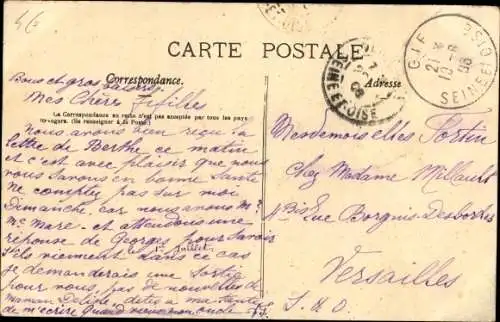 CARTE POSTALE
Correspondance.
Adresse
La Correspondance au recto n'est pas acceptée par tous les pays
(Se renseigner à la Poste)
Bous et gros baisers
Mes Chères Fifilles
Nous avons bien reçu la
lettre de Berthe ce matin
et c'est avec plaisir que nous
vous savons en bonne Santé
Ne comptez pas sur moi
Dimanche, car nous avons Mr
Mme Mare et attendons une
réponse de Georges pour savoir
1er Juillet
s'ils viennent dans ce cas
je demanderais une Sortie
pour vous, pas de nouvelles de
maman dites à ma
de m'écrire Quand oncle
Mesdemoiselles Fortin
Chez Madame Millault
4 Bis Rue Borgnis Desbordes
Versailles
S. & O.
GIF
21
6
08
SEINE ET OISE
SEINE ET OISE